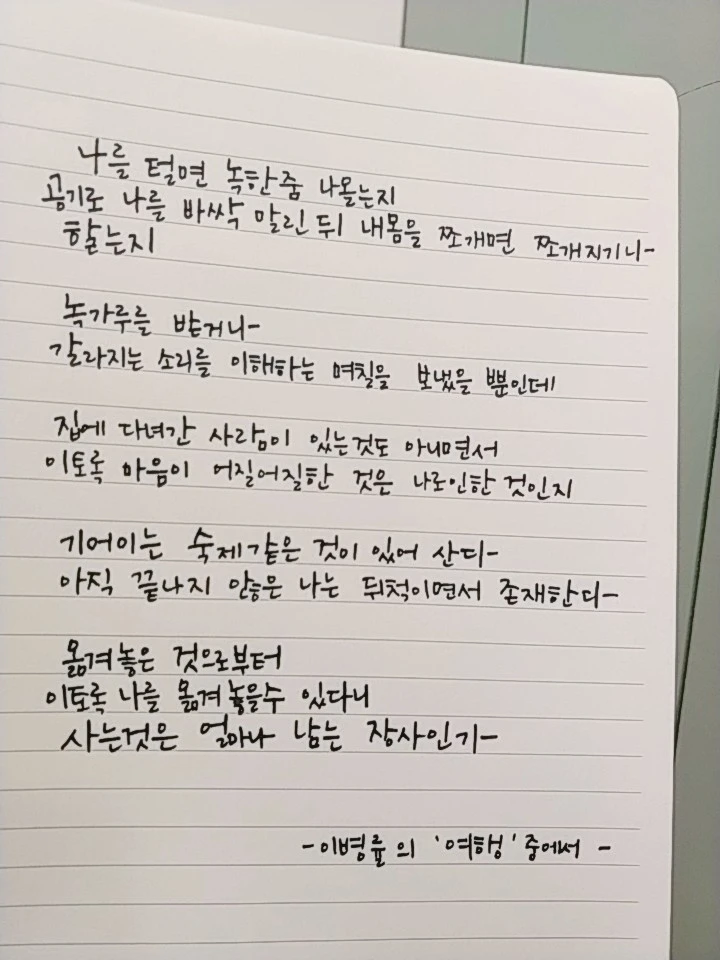 나를 털면 녹한줌 나올는지
공기로 나를 바싹 말린 뒤 내몸을 쪼개면 쪼개지기나
할는지
녹가루를 받거나
갈라지는 소리를 이해하는 며칠을 보냈을 뿐인데
집에 다녀간 사람이 있는것도 아니면서
이토록 마음이 어질어질한 것은 나로인한 것인지
기어이는 숙제같은 것이 있어 산다
아직 끝나지 않은 나는 뒤척이면서 존재한다
옮겨놓은 것으로부터
이토록 나를 옮겨놓을수 있다니
사는것은 얼마나 남는 장사인가
-이병률의 '여행' 중에서 -